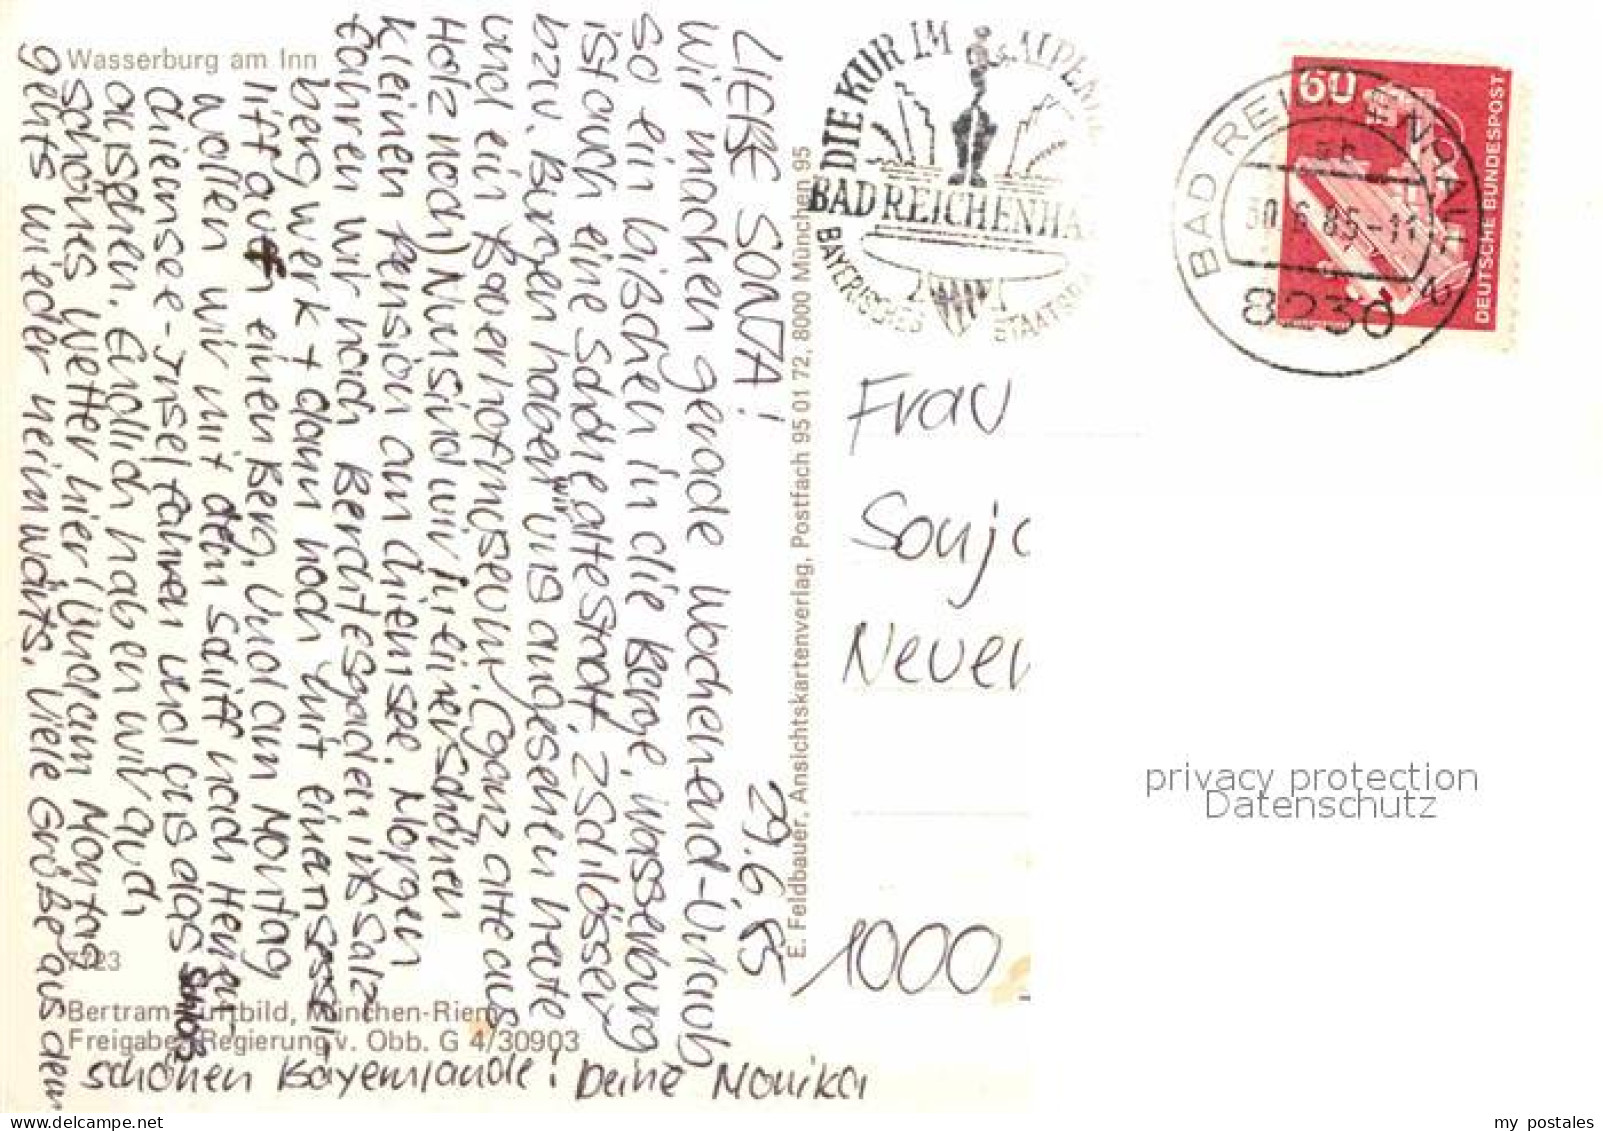 Wasserburg am Inn
LIEBE SONJA!
29.6.85
Wir machen gerade Wochenend-Urlaub
so ein bißchen in die Berge. Wasserburg
ist auch eine schöne Altestadt, 2 Schlösser
bzw. Burgen haben wir uns angesehen heute
und ein Bauernhofmuseum. (ganz alte aus
Holz noch) Nun sind wir in einer schönen
kleinen Pension am Chiemsee. Morgen
fahren wir nach Berchtesgaden ins Salz
bergwerk + dann noch mit einem Sessel-
lift auf einen Berg, und am Montag
wollen wir mit dem Schiff nach Herren-
chiemsee-Insel fahren und uns das Schloß
ansehen. Endlich haben wir auch
schönes Wetter hier (und am Montag
gehts wieder heimwärts. Viele Grüße aus dem
schönen Bayernlande! Deine Monika
7723
Bertram-Luftbild, München-Riem
Freigabe: Regierung v. Obb. G 4/30903
E. Feldbauer, Ansichtskartenverlag, Postfach 95 01 72, 8000 München 95
DIE KUR IM ALPENKL
BAD REICHENHA
BAYERISCHES STAATSBA
BAD REICHENHALL 2
30.6.85-11
8230
60
DEUTSCHE BUNDESPOST
Frau
Sonja
Neuer
1000
privacy protection
Datenschutz
my postales